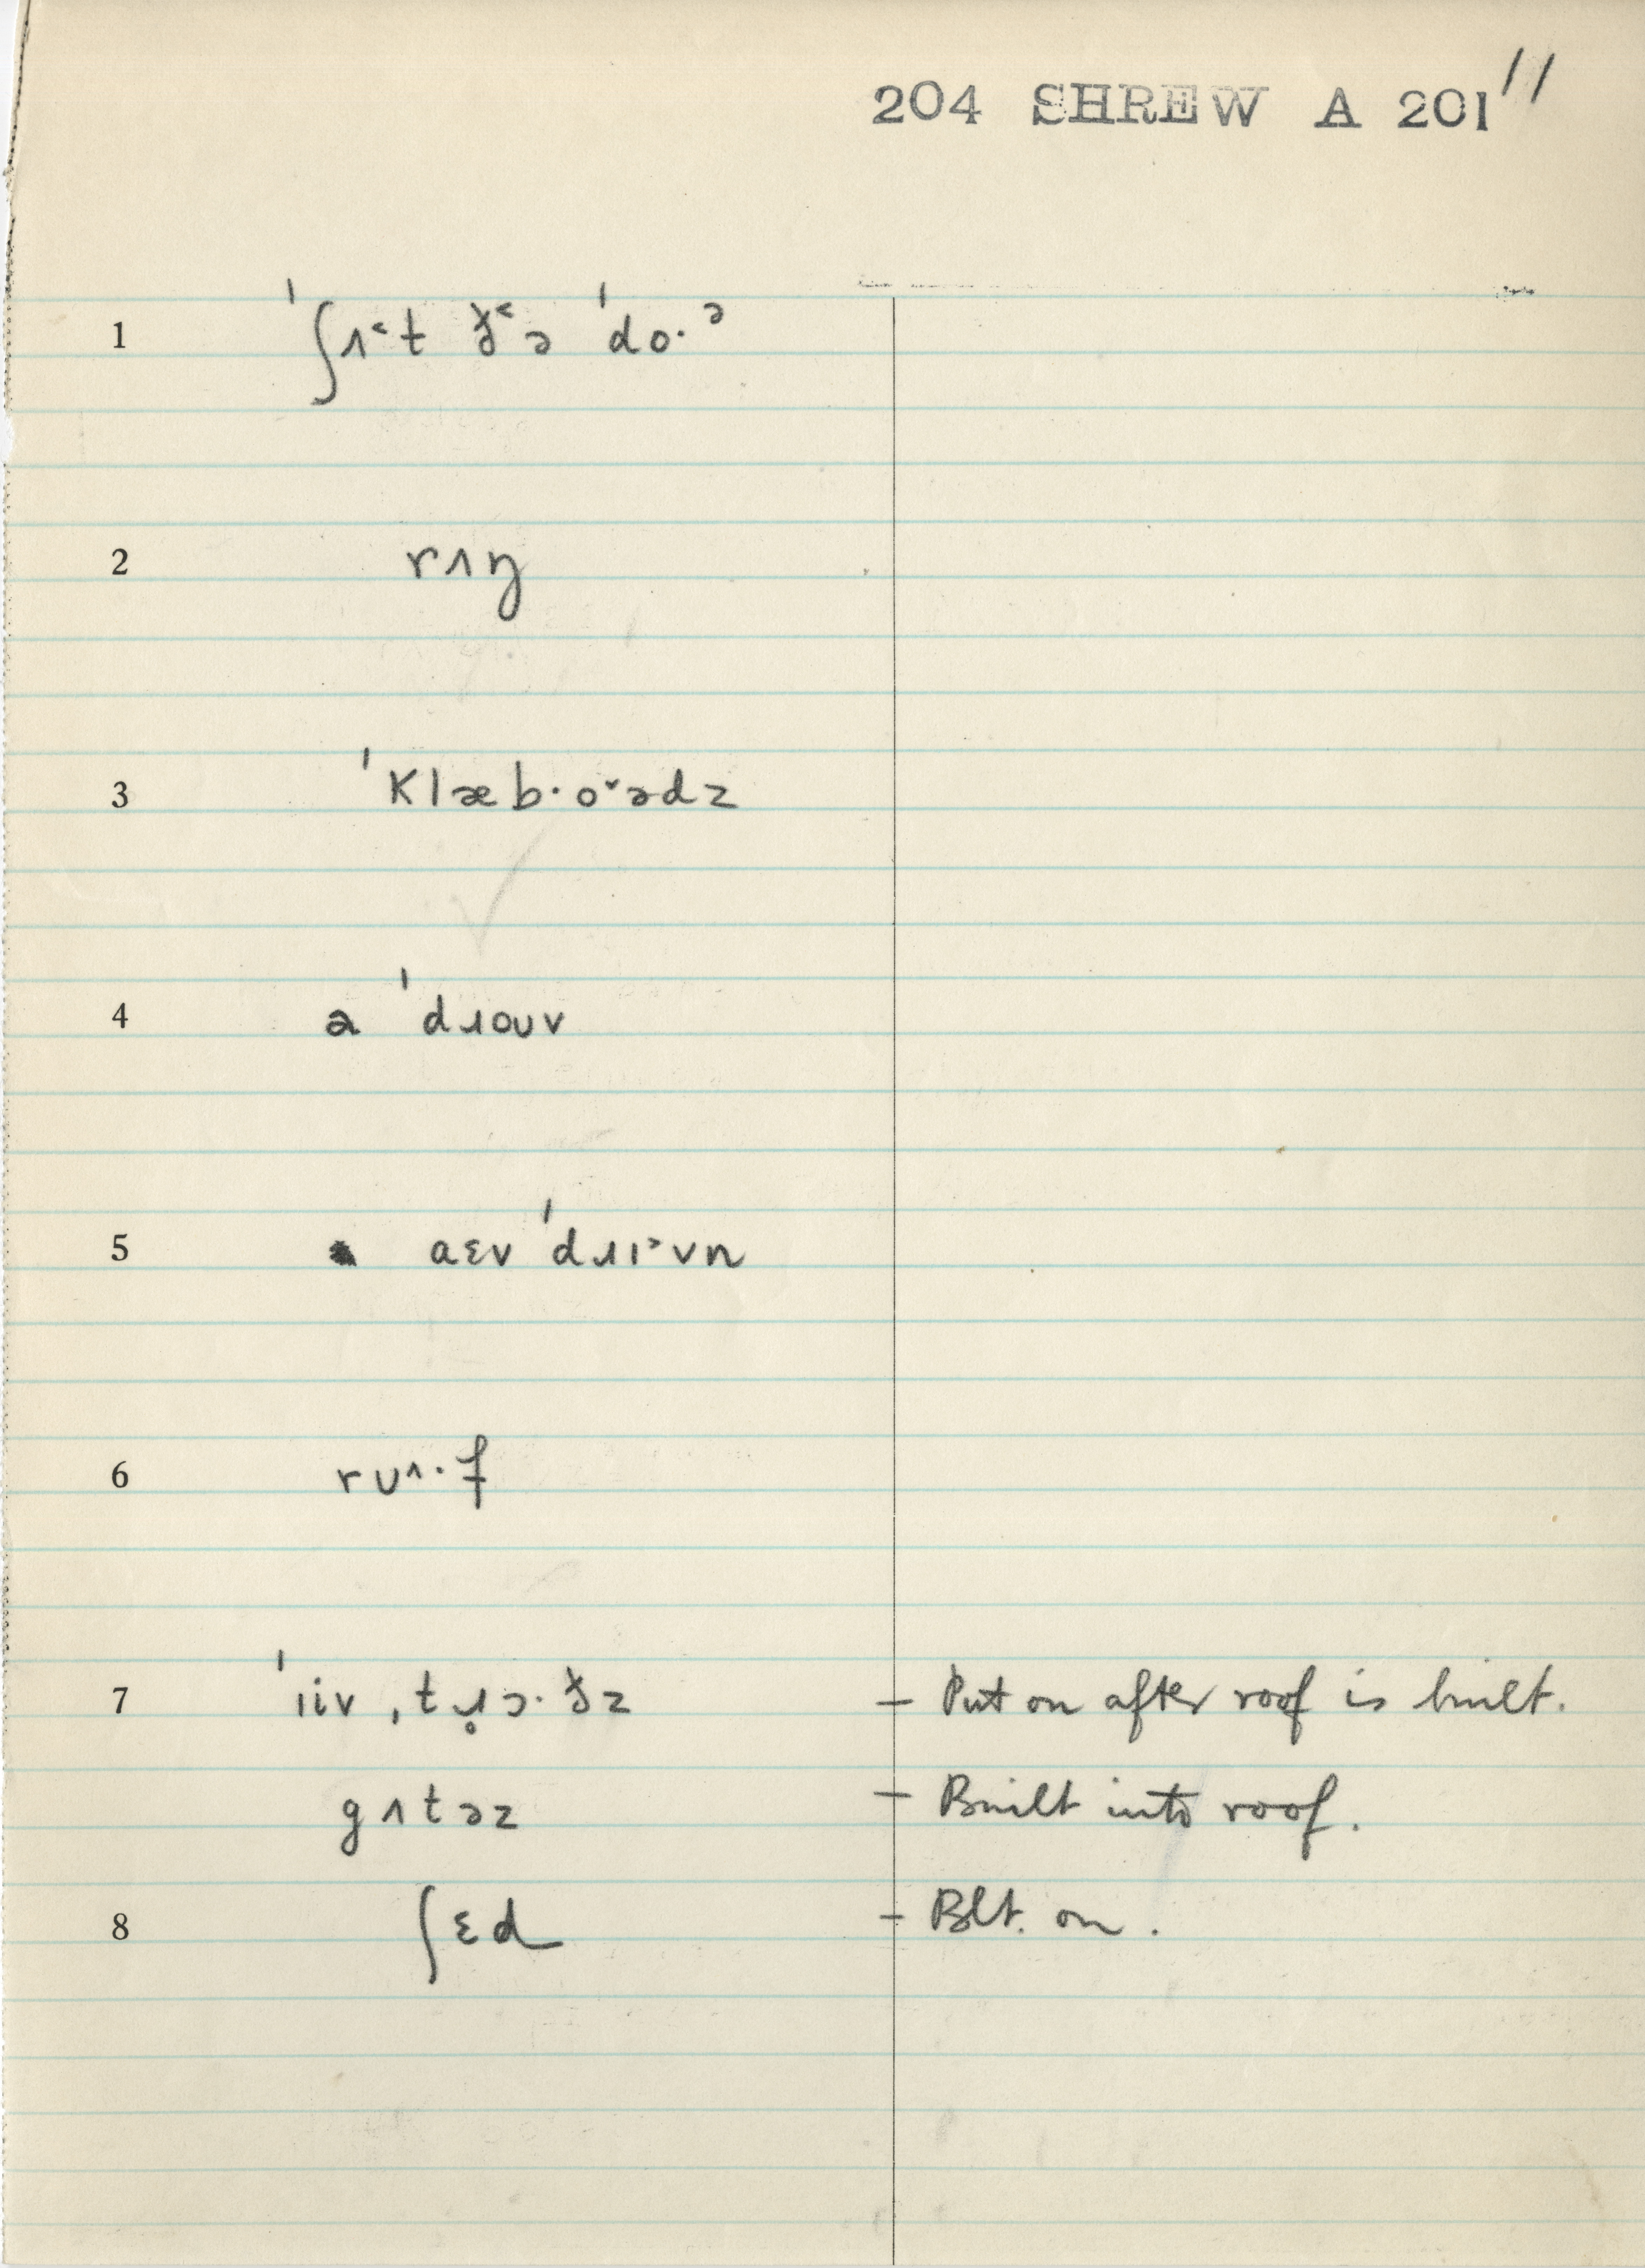 204 SHREW A 201 11
1 ˈʃʌ˂t ð˂ə ˈdo·ᵊ
2 rʌŋ
3 ˈklæb·o˅ədz
4 a ˈdɹouv
5 aɛv ˈdɹɪ˃vn
6 rᴜ^·f
7 ˈiiv ˌtɹ̥ɔ·ðz – Put on after roof is built.
gʌtəz – Built into roof.
8 ʃɛd – Blt. on.